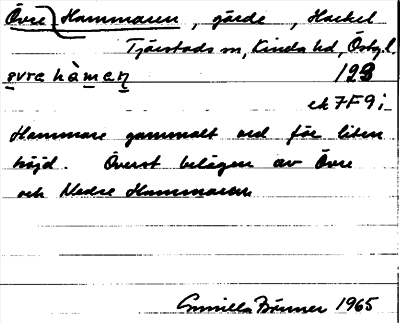 Övre Hammaren, gärde, Hackel
Tjärstads sn, Kinda hd, Östg.l.
øvrehàmeṇ 123
ek 7F9i
Hammare gammalt ord för liten
höjd. Överst belägen av Övre
och Nedre Hammaren
Gunilla Bönner 1965